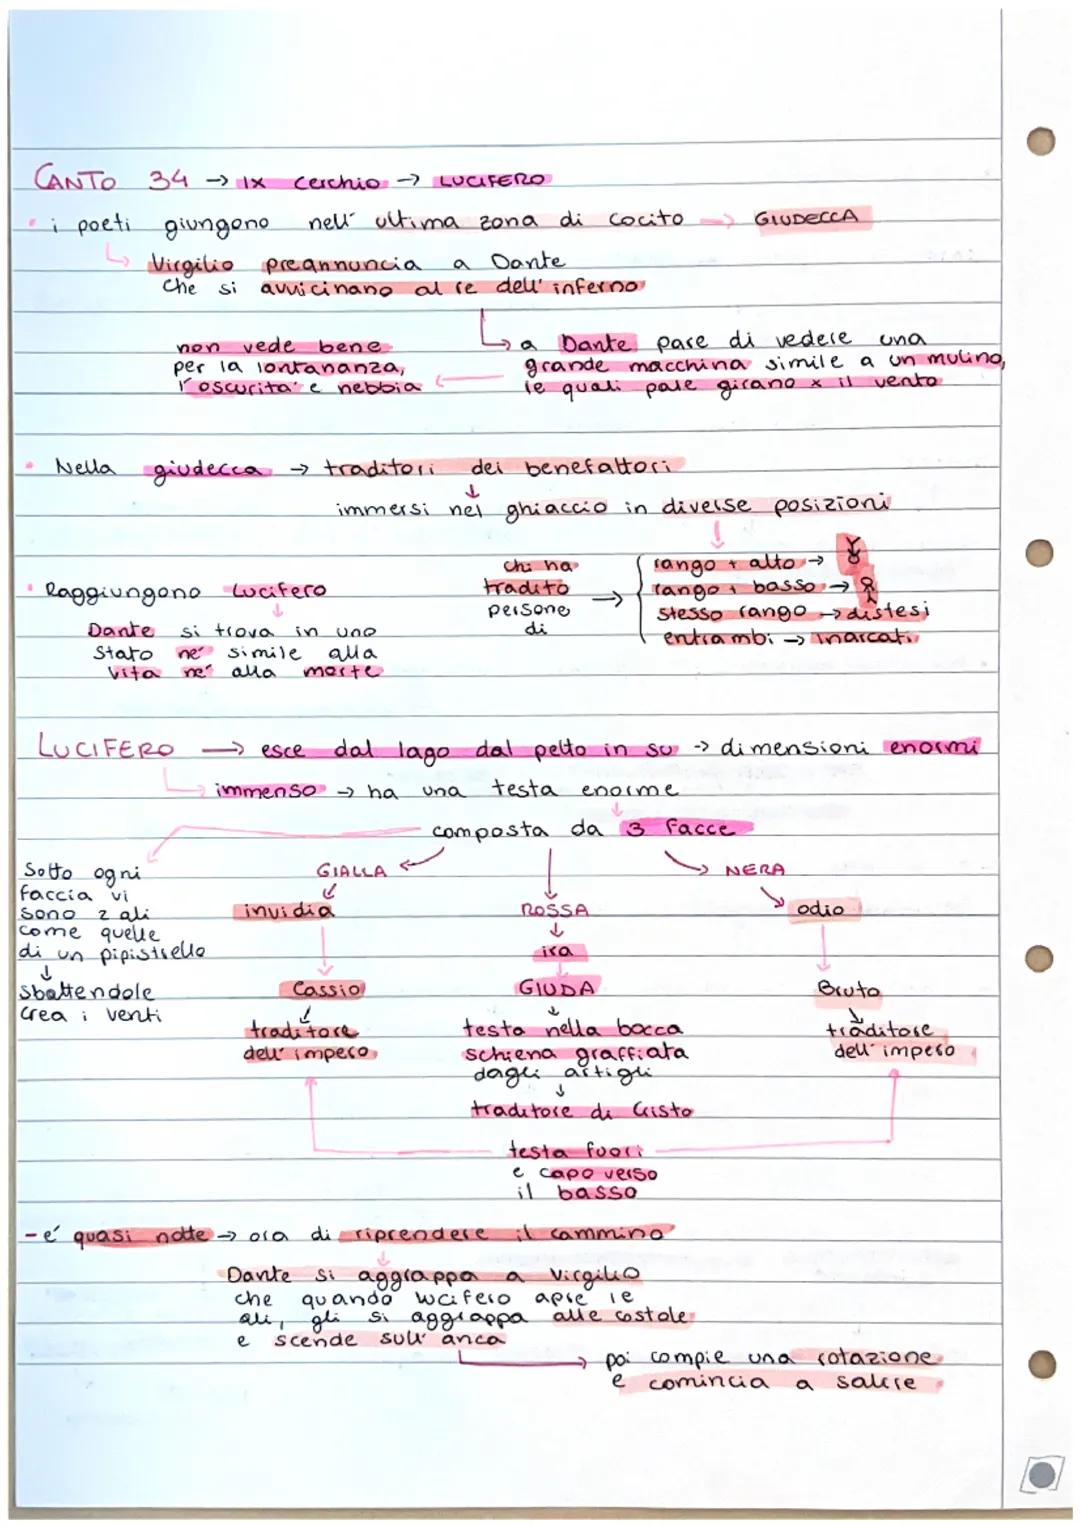 CANTO 34 → IX cerchio → LUCIFERO
• i poeti giungono nell' ultima zona di Cocito → GIUDECCA
↳ Virgilio preannuncia a Dante
che si avvicinano al re dell' inferno
↳ a Dante pare di vedere una
grande macchina simile a un mulino,
le quali pale girano x il vento
non vede bene
per la lontananza,
l'oscurita' e nebbia
• Nella giudecca → traditori dei benefattori
↓
immersi nel ghiaccio in diverse posizioni
↓
chi ha
tradito
persone
di
→
rango + alto →
rango + basso →
stesso rango → distesi
entrambi → inarcati
• Raggiungono Lucifero
↓
Dante si trova in uno
stato ne' simile alla
vita ne' alla morte
LUCIFERO → esce dal lago dal petto in su → dimensioni enormi
↳ immenso → ha una testa enorme
↓
composta da 3 facce
Sotto ogni
faccia vi
sono 2 ali
come quelle
di un pipistrello
↓
sbattendole
crea i venti
GIALLA
↓
invidia
↓
Cassio
↓
traditore
dell' impero
ROSSA
↓
ira
↓
GIUDA
↓
testa nella bocca
schiena graffiata
dagli artigli
↓
traditore di Cristo
NERA
↓
odio
↓
Bruto
↓
traditore
dell' impero
testa fuori
e capo verso
il basso
- e' quasi notte → ora di riprendere il cammino
↓
Dante si aggrappa a Virgilio
che quando Lucifero apre le
ali, gli si aggrappa alle costole
e scende sull' anca
→ poi compie una rotazione
e comincia a salire